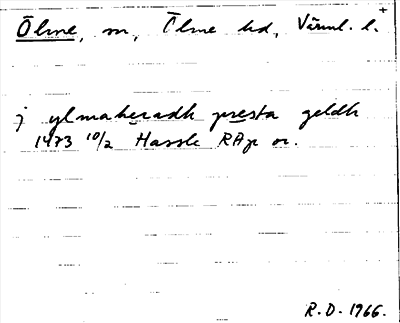 Ölme, sn, Ölme hd, Värml. l. +
j ylmaheradh presta geldh
1473 10/2 Hassle RAp or.
R.D. 1966.